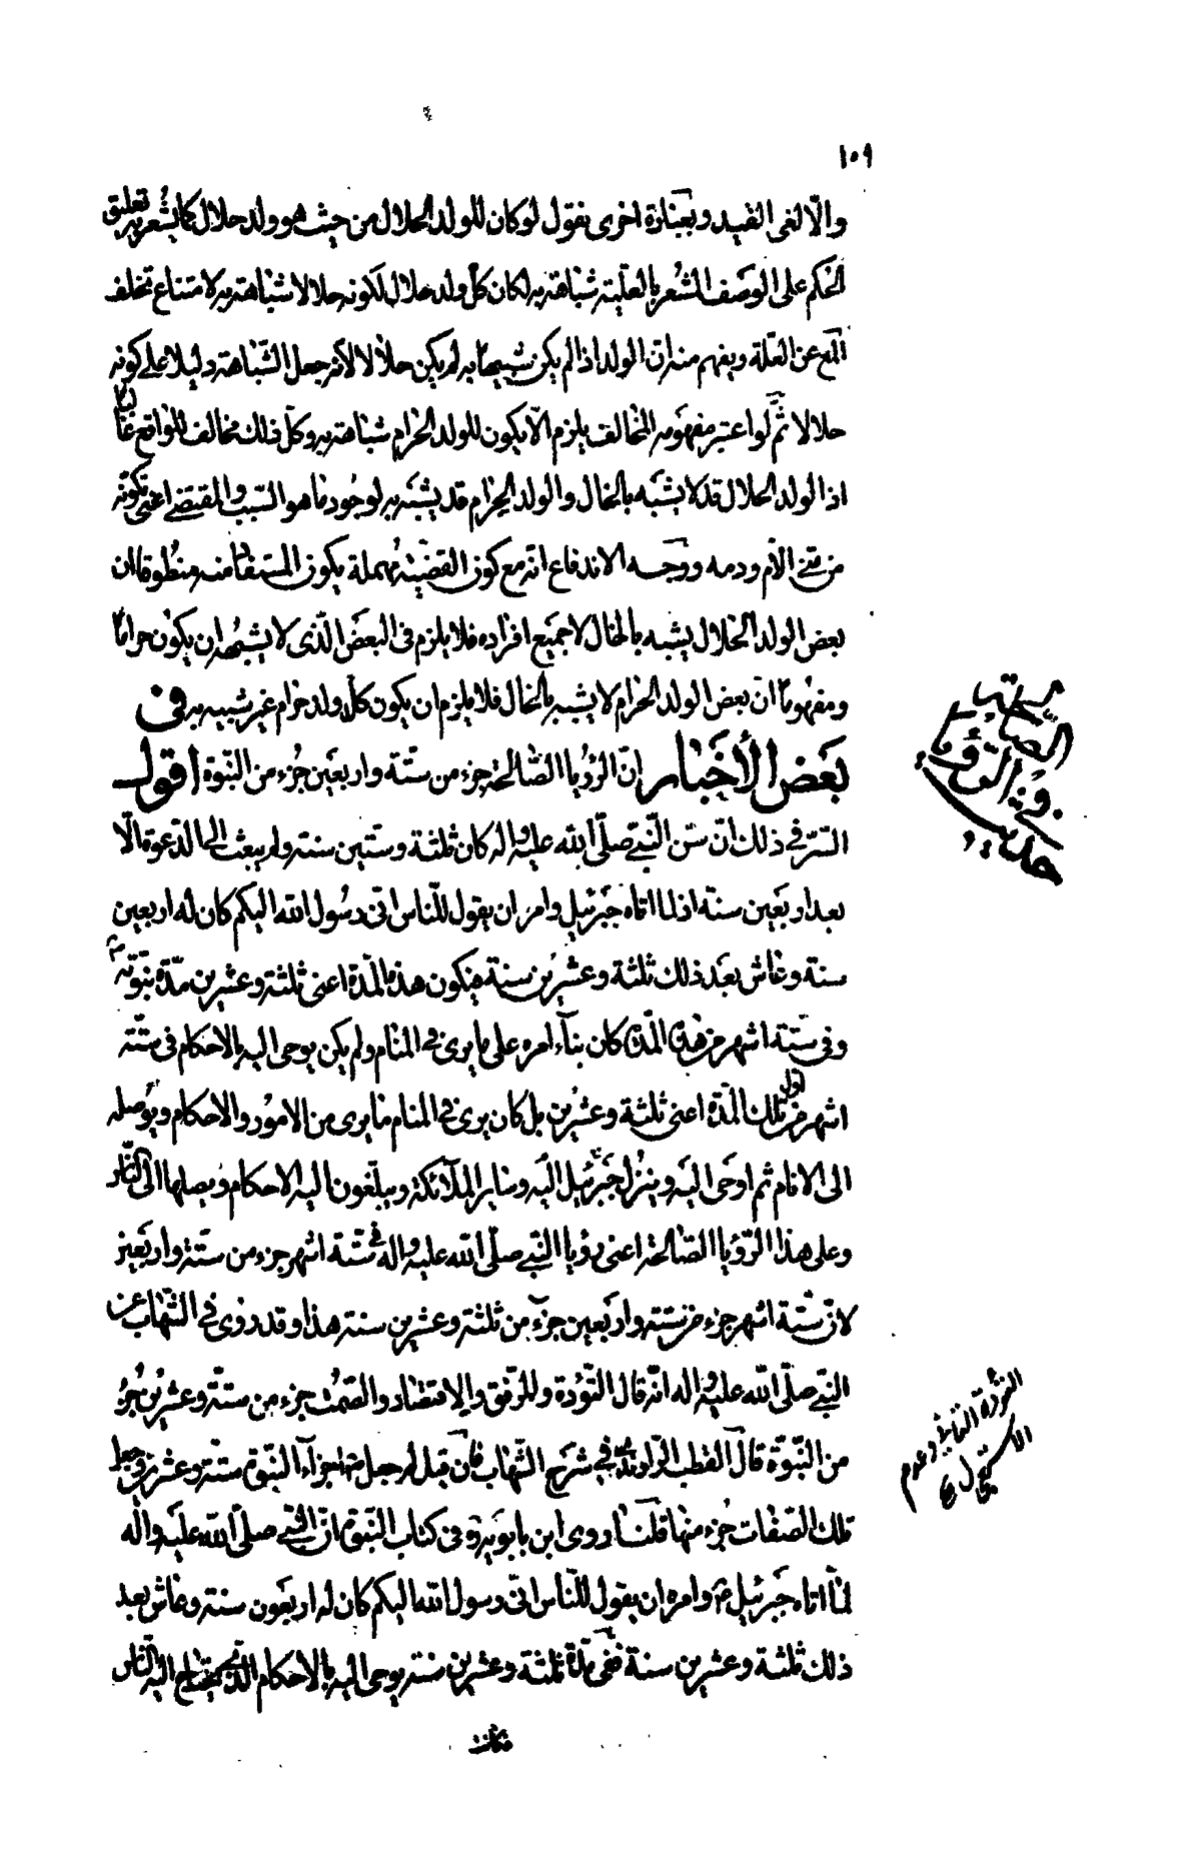 ١٠٩
والّا لغى القيد وبعبارة اخرى نقول لو كان للولد الحلال من حيث هو ولد حلال كما يشعر به تعليق
الحكم على الوصف المشعر بالعلية شباهة به لكان كل ولد حلال لكونه حلالا شباهة به لامتناع تخلف
المع عن العلة ويفهم منه ان الولد اذا لم يكن شبيها به لم يكن حلالا لانه جعل الشباهة دليلا على كونه
حلالا ثم لو اعتبر مفهومه المخالف يلزم الّا يكون للولد الحرام شباهة به وكل ذلك مخالف للواقع غالبا
اذ الولد الحلال قد لا يشبه بالخال والولد الحرام قد يشبه به لوجود ما هو السبب والمقتضى اعنى تكونه
من منى الام ودمه ووجه الاندفاع انه مع كون القضية مهملة يكون المستفاد منه منطوقا ان
بعض الولد الحلال يشبه بالخال لا جميع افراده فلا يلزم فى البعض الّذى لا يشبهه ان يكون حراما
ومفهوما ان بعض الولد الحرام لا يشبه بالخال فلا يلزم ان يكون كل ولد حرام غير شبيه به فى
بعض الأخبار ان الرؤيا الصالحة جزء من ستة واربعين جزء من النبوة اقول
السّر فى ذلك ان سن النبى صلّى الله عليه واله كان ثلثة وستين سنة ولم يبعث الى الدعوة الّا
بعد اربعين سنة اذ لما اتاه جبرئيل وامره ان يقول للناس انى رسول الله اليكم كان له اربعين
سنة وعاش بعد ذلك ثلثة وعشرين سنة فيكون هذه المدة اعنى ثلثة وعشرين مدة نبوته
وفى ستة اشهر من هذه المدة كان بناء امره على ما يرى فى المنام ولم يكن يوحى اليه بالاحكام فى ستة
اشهر من اول تلك المدة اعنى ثلثة وعشرين بل كان يرى فى المنام ما يرى من الامور والاحكام ويوصله
الى الانام ثم اوحى اليه وينزل جبرئيل اليه وساير الملائكة ويبلغون اليه الاحكام ويصلها الى الناس
وعلى هذا الرؤيا الصالحة اعنى رؤيا النبى صلّى الله عليه واله فى ستة اشهر جزء من ستة واربعين
لان ستة اشهر جزء من ستة واربعين جزء من ثلثة وعشرين سنة هذا وقد روى فى الشهاب عن
النبى صلّى الله عليه واله انه قال التؤدة والرفق والاقتصاد والصمت جزء من ستة وعشرين جزء
من النبوة قال القطب الراوندى فى شرح الشهاب فان قيل لم جعل اجزاء النبوة ستة وعشرين وجعل
تلك الصفات جزء منها قلنا روى ابن بابويه فى كتاب النبوة ان النبى صلّى الله عليه واله
لما اتاه جبرئيل ع وامره ان يقول للناس انى رسول الله اليكم كان له اربعون سنة وعاش بعد
ذلك ثلثة وعشرين سنة ففى مدة ثلثة وعشرين سنة يوحى اليه بالاحكام الّتى يحتاج اليه الناس
فكانت
الصالحة
فى الرؤيا
حديث
التؤدة التأنى وعدم
الاستعجال